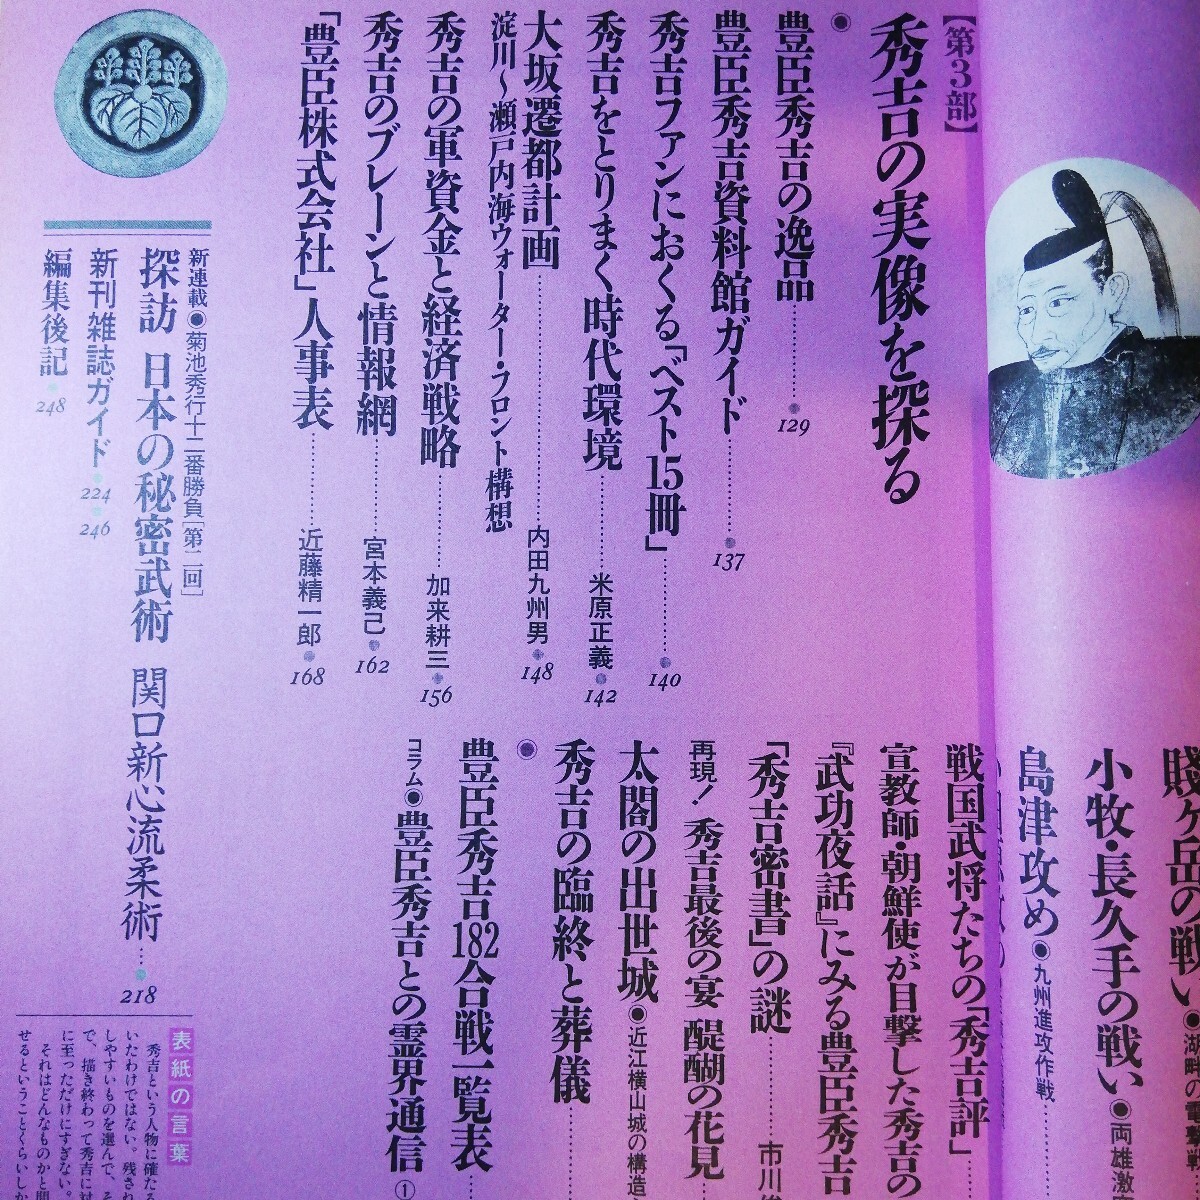 賤ヶ岳の戦い●湖畔の電撃戦
小牧・長久手の戦い●両雄激
島津攻め●九州進攻作戦
【第3部】
秀吉の実像を探る
豊臣秀吉の逸品 129
豊臣秀吉資料館ガイド 137
秀吉ファンにおくる「ベスト15冊」 140
秀吉をとりまく時代環境 米原正義 142
大坂遷都計画 内田九州男 148
淀川～瀬戸内海ウォーター・フロント構想
秀吉の軍資金と経済戦略 加来耕三 156
秀吉のブレーンと情報網 宮本義己 162
「豊臣株式会社」人事表 近藤精一郎 168
戦国武将たちの「秀吉評」
宣教師・朝鮮使が目撃した秀吉の
『武功夜話』にみる豊臣秀吉
「秀吉密書」の謎 市川
再現！ 秀吉最後の宴 醍醐の花見
太閤の出世城●近江横山城の構造
秀吉の臨終と葬儀
豊臣秀吉182合戦一覧表
コラム●豊臣秀吉との霊界通信①
新連載●菊池秀行十二番勝負［第二回］
探訪 日本の秘密武術 関口新心流柔術…218
新刊雑誌ガイド・224・246
編集後記・248
表紙の言葉
秀吉という人物に確たる
いたわけではない。残され
しやすいものを選んで、そ
で、描き終わって秀吉に対
に至っただけにすぎない。
それはどんなものかと聞
せるということくらいしか